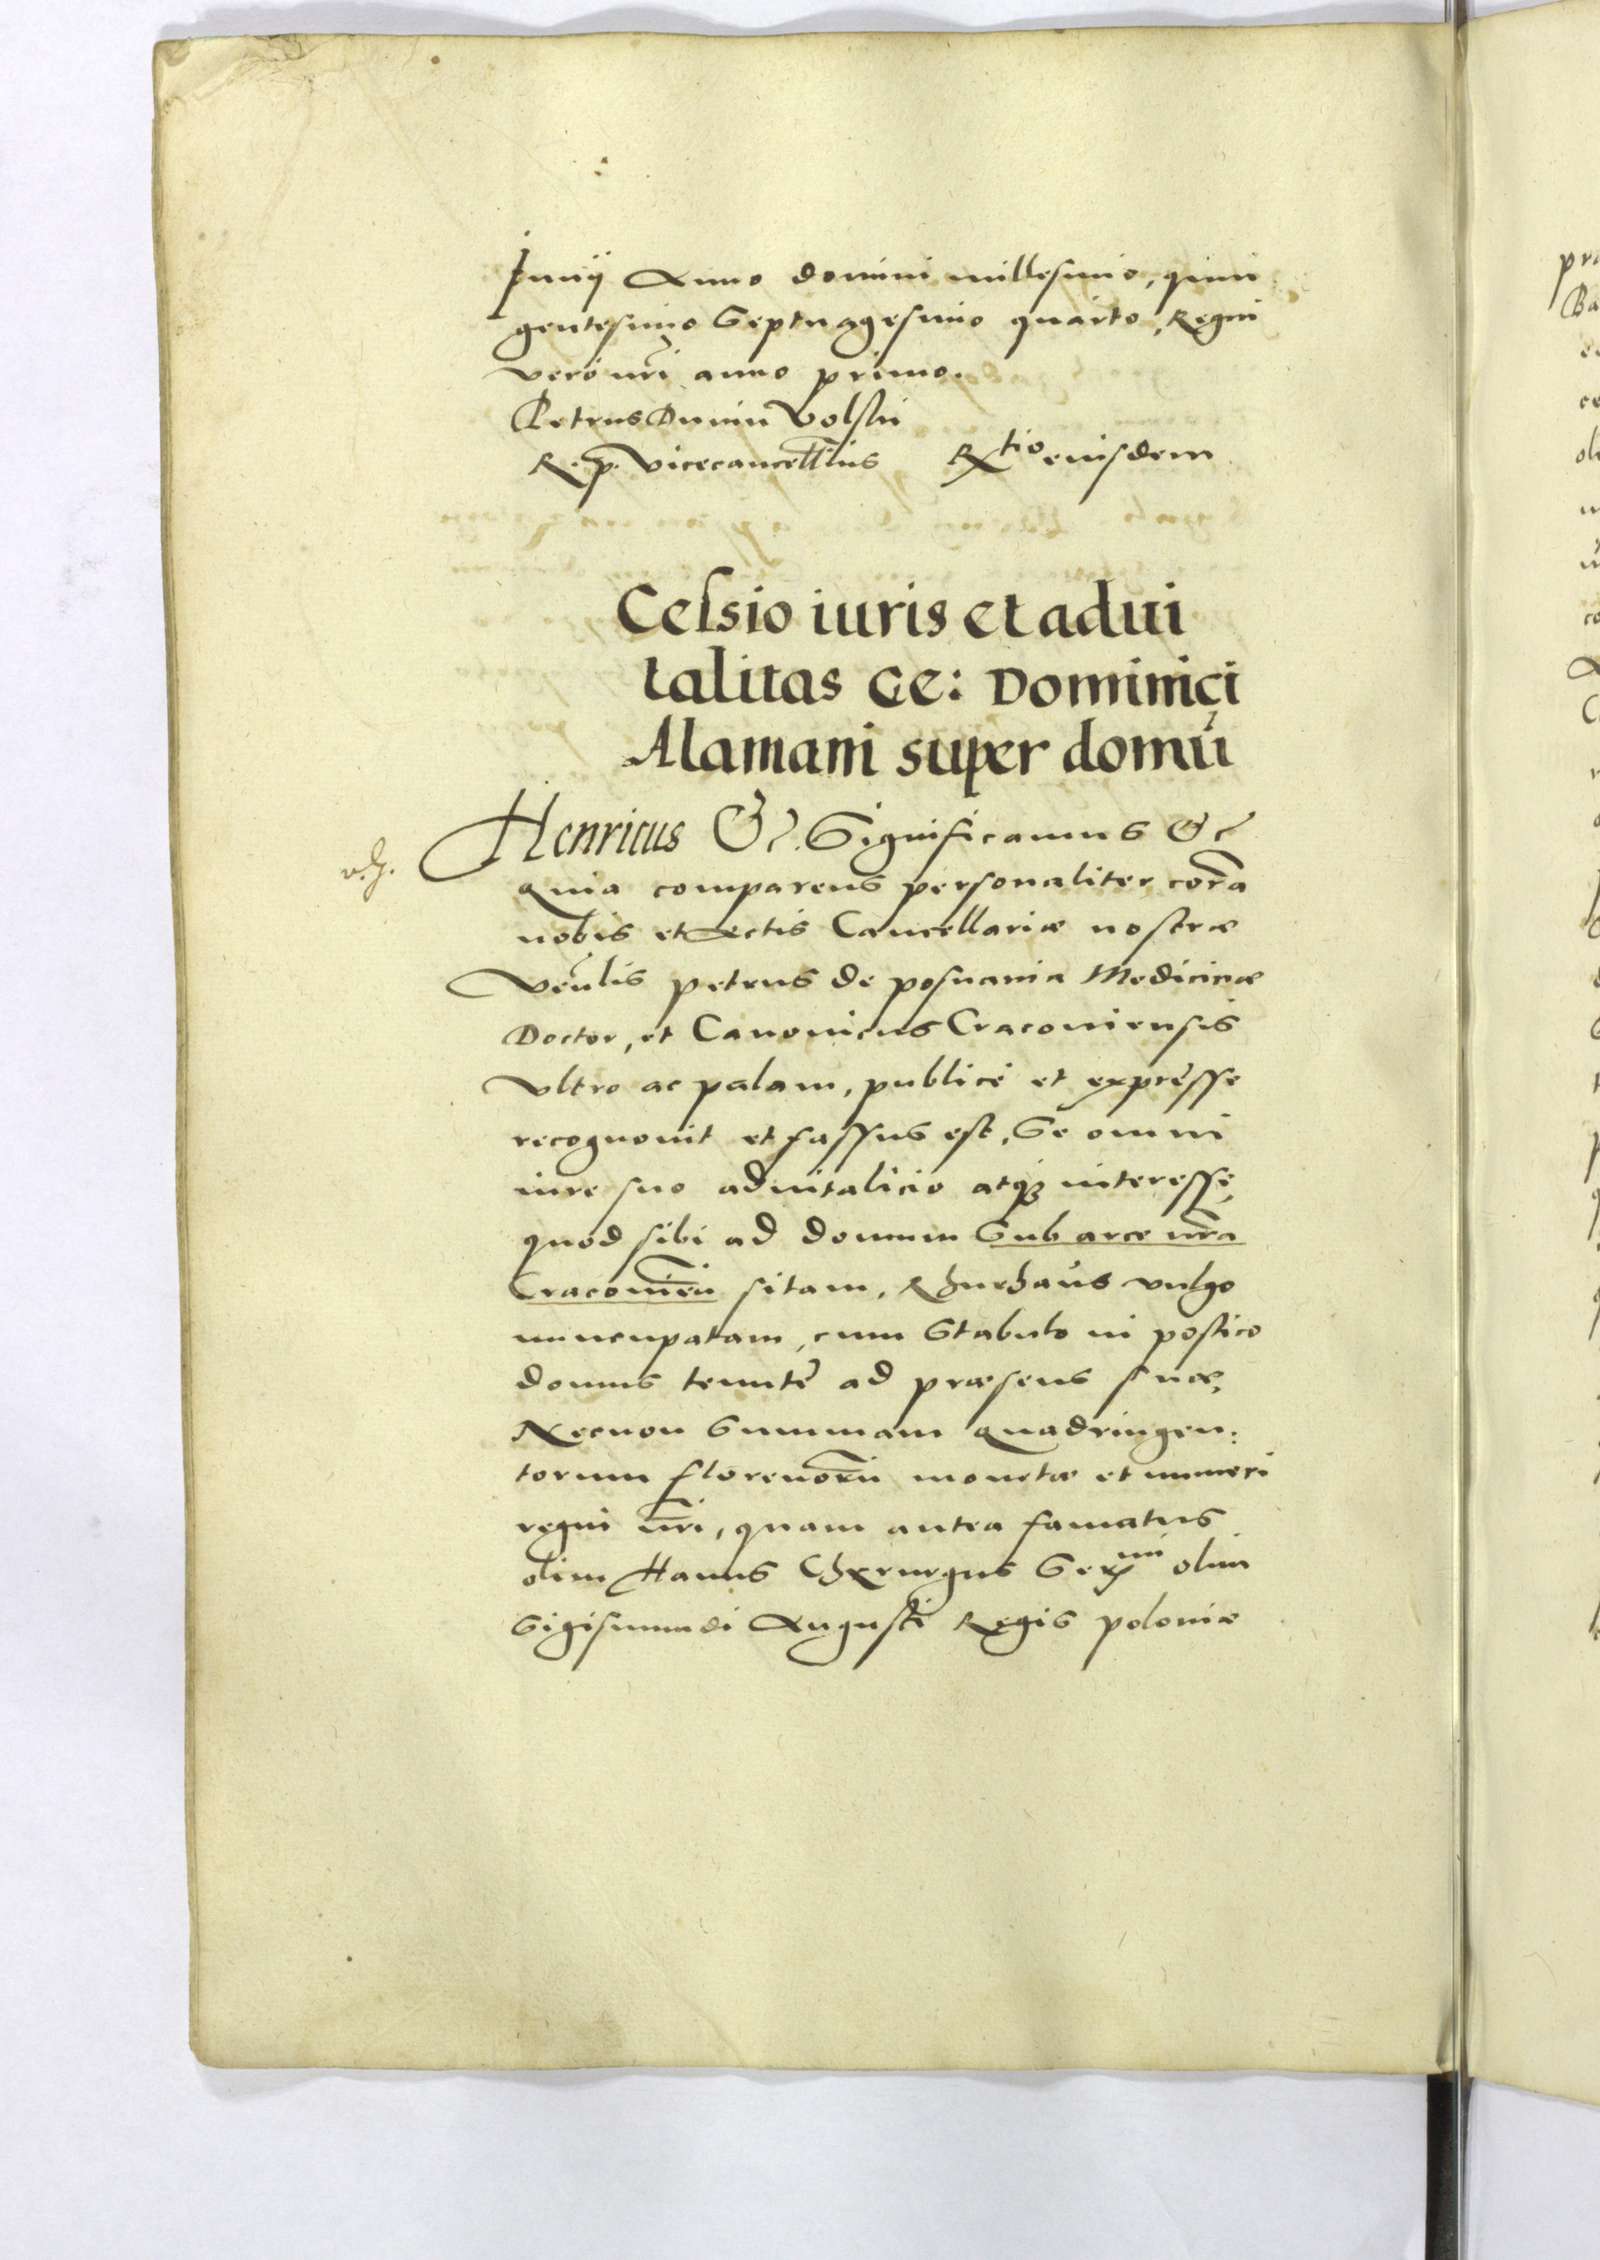 Junij Anno domini millesimo, quin
gentesimo Septuagesimo quarto, Regni
vero nri anno primo.
Petrus Dunin Volski
R. p. Vicecancellius Rtio eiusdem
Celsio iuris et adui
talitas Ge: Dominici
Alamani super domū
Henricus &c. Significamus &c
Quia comparens personaliter corā
nobis et Actis Cancellariæ nostræ
Venlis Petrus de posnania Medicinæ
Doctor, et Canonicus Cracouiensis
Vltro ac palam, publicè et expresse
recognouit et fassus est, Se omni
iure suo aduitalicio atq3 interesse,
quod sibi ad domum Sub arce nrā
Cracouien sitam, Rhurhaus vulgo
nuncupatam, cum Stabulo in postico
domus tenutē ad præsens suæ,
Necnon Summam quadringen:
torum florenorū monetæ et numeri
regni nri, quam antea famatus
olim Hanus Chyrurgus Sermi olim
Sigismundi Augusti Regis poloniæ